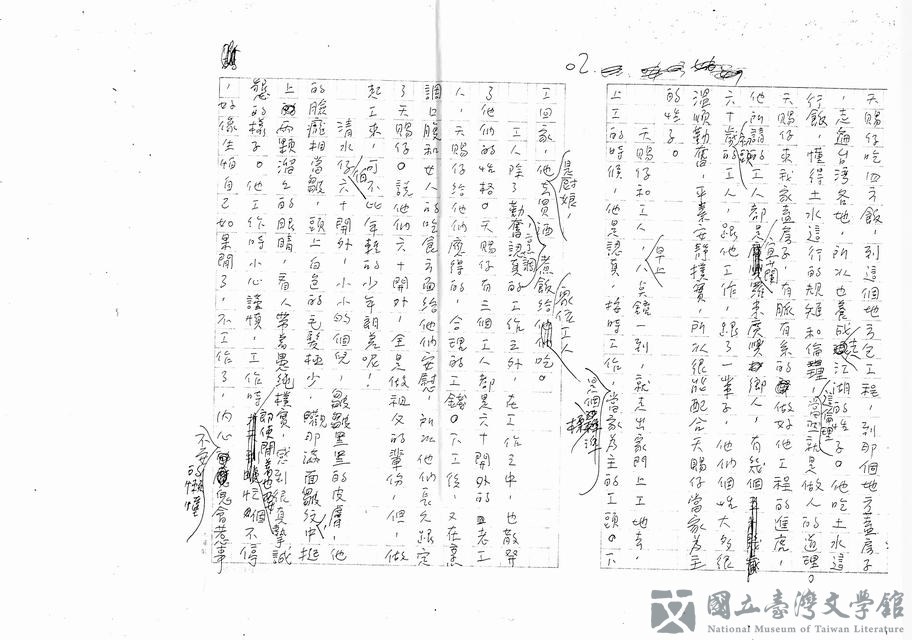 02
天賜仔吃四方飯，到這個地方包工程，到那個地方蓋房子
，走遍台灣各地，所以也養成走江湖的性子。他吃土水這
行飯，懂得土水這行的規矩和倫理，這倫理當然就是做人的道理。
天賜仔來我家蓋房子，有脈有系的做好他工程的進度，
他所請的工人都是宜蘭來鄉人，有幾個
六十歲的工人，跟他工作，跟了一輩子，他們個性大部很
溫順勤奮，平素安靜樸實，所以很能配合天賜仔當家為主
的性子。
天賜仔和工人，早上八點鐘一到，就走出家門上工地去，
上工的時候，他是認真，按時工作，是個標準當家為主的工頭。下
工回家，他是廚娘，去買酒煮飯給眾位工人吃。
工人除了勤奮認真的工作之外，在工作之中，也散發
了他們的性格。天賜仔有三個工人都是六十開外的老工
人，天賜仔給他們應得的，合理的工錢。下工後，又在烹
調口腹和女人的吃食方面給他們安慰，所以他們長久跟定
了天賜仔。說他們六十開外，全是做祖父的輩份，但，做
起工來，可不比年輕的少年郎差呢！
清水伯仔六十開外，小小的個兒，皺皺黑黑的皮膚，他
的臉龐相當皺，頭上白色的毛髮極少，矚那滿面皺紋中挺
上兩顆溜上的眼睛，看人帶著愚純樸實，感到很真摯誠
懇的樣子。他工作時小心謹慎，工作時即使閒著也要忙個不停
，好像生怕自己如果閒了，不工作了，內心會惹事
不安的懂
國立臺灣文學館
National Museum of Taiwan Literature